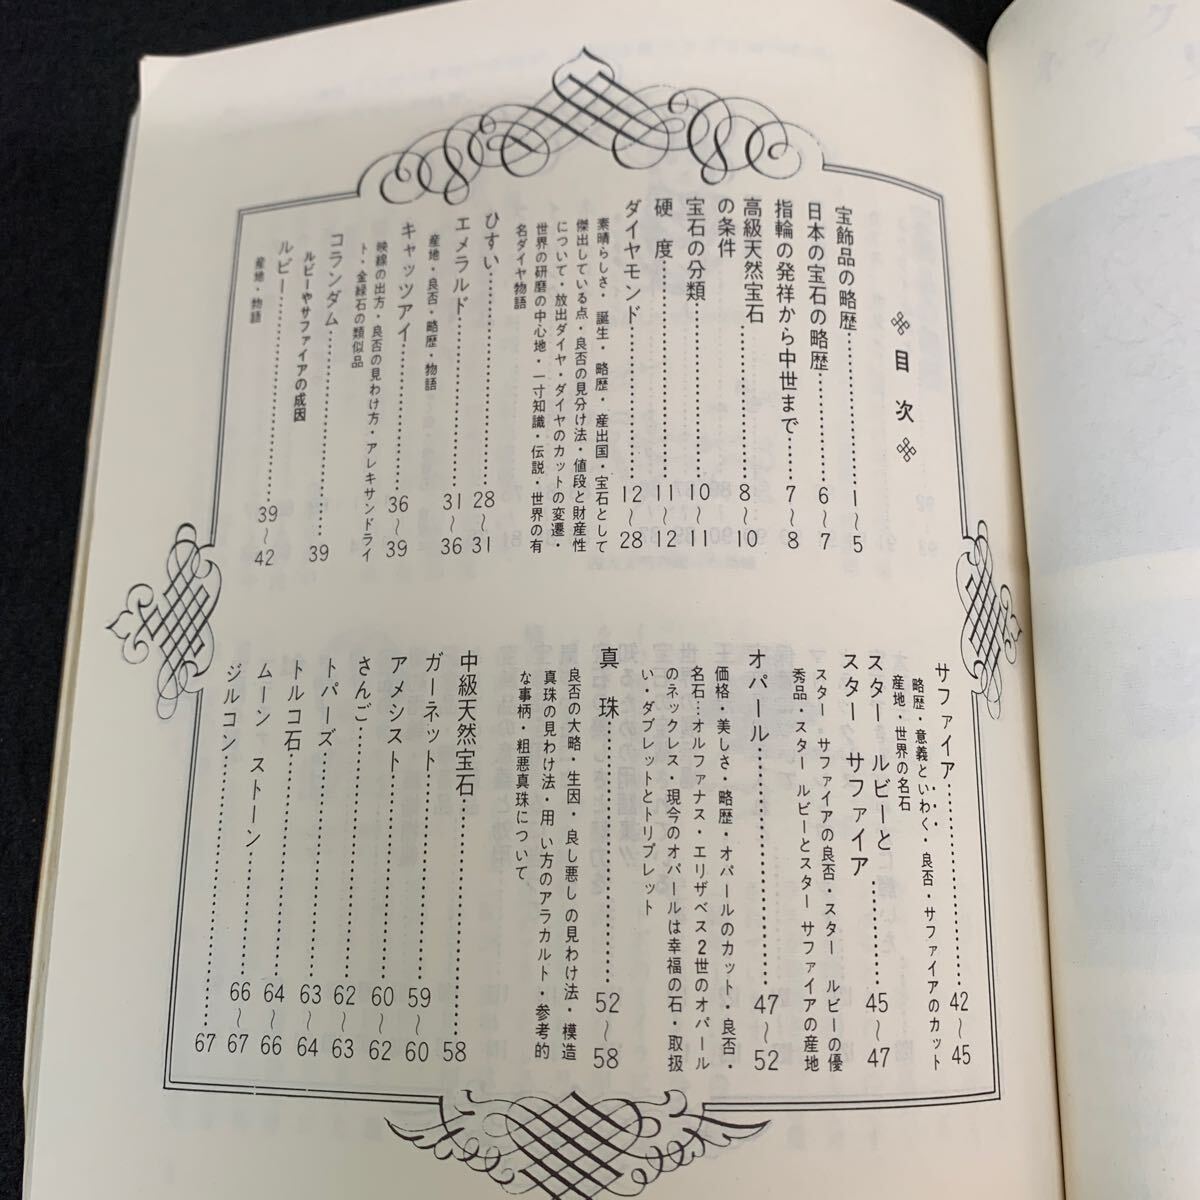 目次
宝飾品の略歴……………1〜5
日本の宝石の略歴……………6〜7
指輪の発祥から中世まで……7〜8
高級天然宝石
の条件……………8〜10
宝石の分類……………10〜11
硬度……………11〜12
ダイヤモンド……………12〜28
素晴らしさ・誕生・略歴・産出国・宝石として
傑出している点・良否の見分け法・値段と財産性
について・放出ダイヤ・ダイヤのカットの変遷・
世界の研磨の中心地・一寸知識・伝説・世界の有
名ダイヤ物語
ひすい……………28〜31
エメラルド……………31〜36
産地・良否・略歴・物語
キャッツアイ……………36〜39
映線の出方・良否の見わけ方・アレキサンドライ
ト・金緑石の類似品
コランダム……………39
ルビーやサファイアの成因
ルビー……………39〜42
産地・物語
サファイア……………42〜45
略歴・意義といわく・良否・サファイアのカット
産地・世界の名石
スター ルビーと
スター サファイア……………45〜47
スター サファイアの良否・スター ルビーの優
秀品・スター ルビーとスター サファイアの産地
オパール……………47〜52
価格・美しさ・略歴・オパールのカット・良否・
名石…オルファナス・エリザベス2世のオパール
のネックレス・現今のオパールは幸福の石・取扱
い・ダブレットとトリプレット
真珠……………52〜58
良否の大略・生因・良し悪しの見わけ法・模造
真珠の見わけ法・用い方のアラカルト・参考的
な事柄・粗悪真珠について
中級天然宝石……………58
ガーネット……………59〜60
アメシスト……………60〜62
さんご……………62〜63
トパーズ……………63〜64
トルコ石……………64〜66
ムーン ストーン……………66〜67
ジルコン……………67